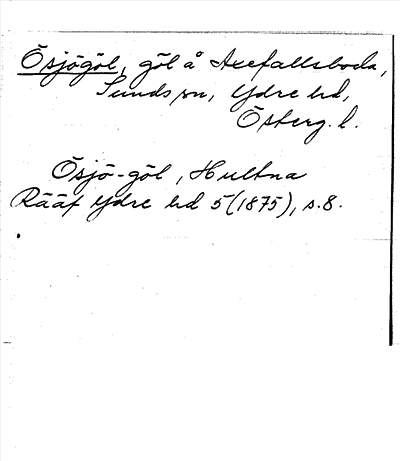 Ösjögöl, göl å Axefallsboda,
Sunds sn, Ydre hd,
Österg. l.
Ösjö-göl, Hultna
Rääf Ydre hd 5(1875), s.8.